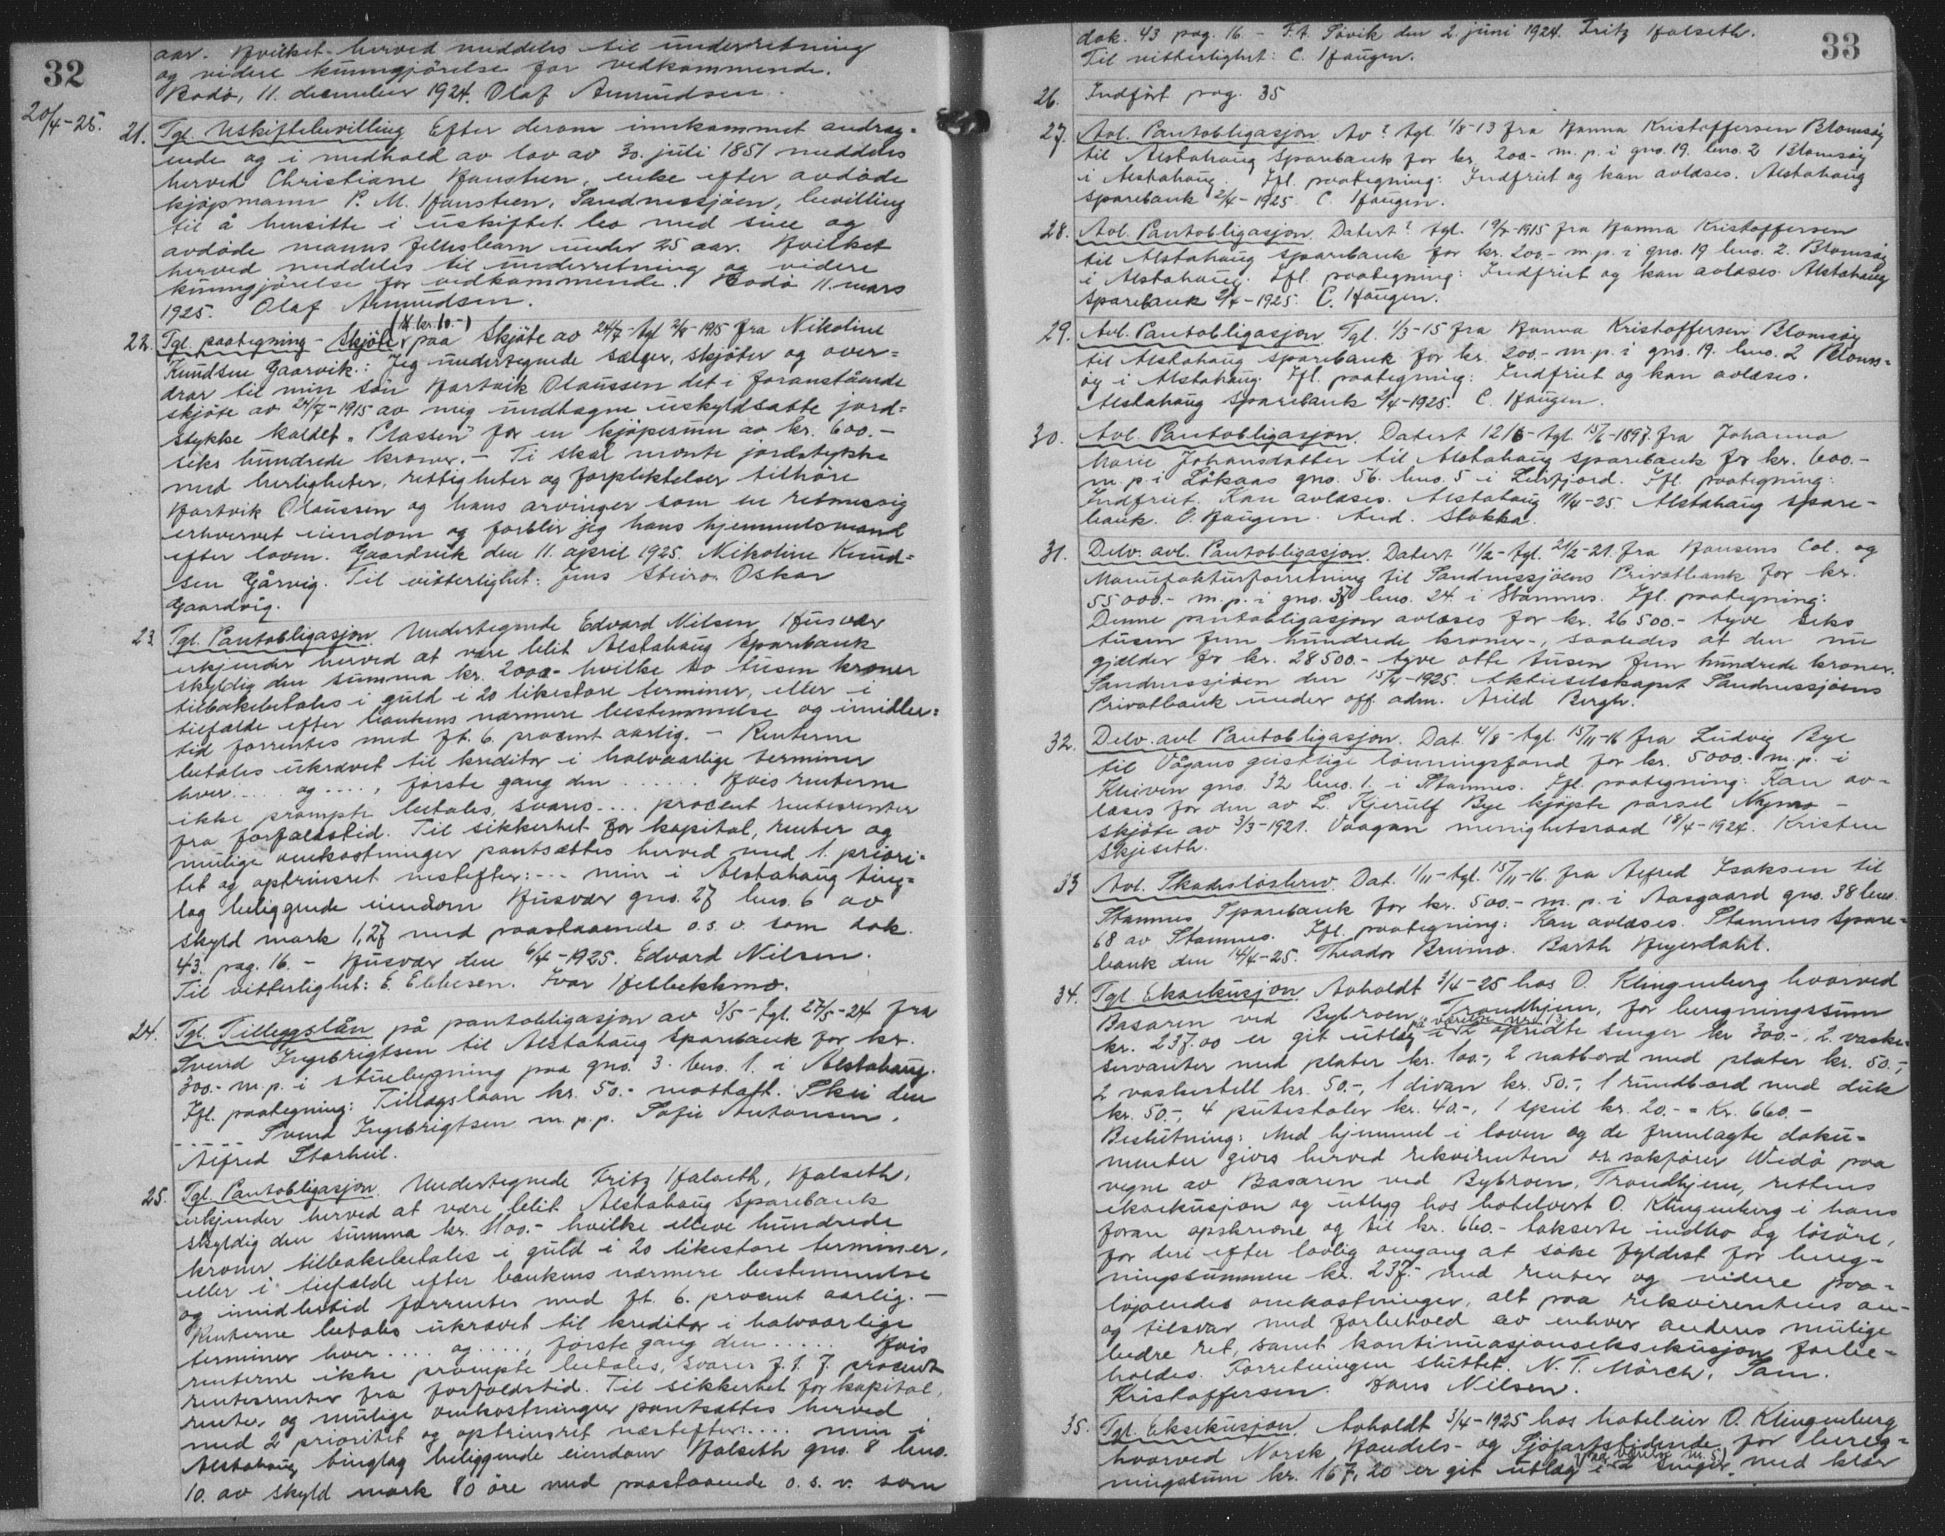 32
aar. Hvilket herved meddeles til underretning
og videre kunngjörelse for vedkommende.
Bodö, 11. december 1924. Olaf Amundsen.
20/4-25.
21. Tgl. Uskiftebevilling Efter derom innkommet andrag-
ende og i medhold av lov av 30. juli 1851 meddeles
herved Christiane Hanssen, enke efter avdöde
kjöpmann P. M. Hanssen, Sandnessjöen, bevilling
til å hensitte i uskiftet bo med sine og
avdöde manns fellesbarn under 25 aar. Hvilket
herved meddeles til underretning og videre
kunngjörelse for vedkommende. Bodö 11. mars
1925. Olaf Amundsen.
(st. kr. 10.-)
22. Tgl. paategning - Skjöte paa skjöte av 24/7- tgl. 2/8-1915 fra Nikoline
Knudsen Gaarvik.: Jeg undertegnede sælger, skjöter og over-
drar til min sön Hartvik Olaussen det i foranstående
skjöte av 24/7-1915 av mig undtagne uskyldsatte jord-
stykke kaldet "Plassen" for en kjöpesum av kr. 600.-
seks hundrede kroner. - Ti skal nævnte jordstykke
med herligheter, rettigheter og forpliktelser tilhöre
Hartvik Olaussen og hans arvinger som en retmessig
erhvervet eiendom og forblir jeg hans hjemmelsmand
efter loven. Gaardvik den 11. april 1925. Nikoline Knud-
sen Gårvig. Til vitterlighet: Jens Steiro. Oskar
Gaardvig.
23. Tgl. Pantobligasjon. Undertegnede Edvard Nilsen Husvær
erkjender herved at være blit Alstahaug Sparebank
skyldig den summa kr. 2000.- hvilke to tusen kroner
tilbakebetales i guld i 20 likestore terminer, eller i
tilfælde efter bankens nærmere bestemmelse og imidler-
tid forrentes med f.t. 6. procent aarlig. - Renterne
betales ukrævet til kreditor i halvaarlige terminer
hver .... og ...., förste gang den ...... Hvis renterne
ikke prompte betales, svares .... procent rentesrenter
fra forfaldstid. Til sikkerhet for kapital, renter og
mulige omkostninger pantsættes herved med 1. priori-
tet og optrinsret nestefter: --- min i Alstahaug ting-
lag beliggende eiendom Husvær gno. 27 bno. 6 av
skyld mark 1,27 med paastaaende o.s.v. som dok.
43. pag. 16. - Husvær den 6/4-1925. Edvard Nilsen.
Til vitterlighet: E. Ebbesen. Ivar Helbekkmo.
24. Tgl. Tilleggslån på pantobligasjon av 3/5- tgl. 27/5-24 fra
Svend Ingebrigtsen til Alstahaug Sparebank for kr.
300.- m.p. i stuebygning paa gno. 3. bno. 1. i Alstahaug.
Ifl. paategning: Tillægslaan kr. 50.- mottatt. Skei den
..... Svend Ingebrigtsen m.p.p. Sofie Antonsen.
Alfred Storheil.
25. Tgl. Pantobligasjon. Undertegnede Fritz Halseth, Halseth,
erkjender herved at være blit Alstahaug Sparebank
skyldig den summa kr. 1100.- hvilke elleve hundrede
kroner tilbakebetales i guld i 20 likestore terminer,
eller i tilfælde efter bankens nærmere bestemmelse
og imidlertid forrentes med f.t. 6. procent aarlig. -
Renterne betales ukrævet til kreditor i halvaarlige
terminer hver .... og ...., förste gang den ..... Hvis
renterne ikke prompte betales, svares f.t. 7. procent
rentesrenter fra forfaldstid. Til sikkerhet for kapital,
renter og mulige omkostninger pantsættes herved
med 2 prioritet og optrinsret næstefter: .... min i
Alstahaug tinglag beliggende eiendom Halseth gno. 8 bno.
10. av skyld mark 80 öre med paastaaende o.s.v. som
33
dok. 43 pag. 16. - F.t. Sövik den 2. juni 1924. Fritz Halseth.
Til vitterlighet: C. Haugen.
26. Indfört pag. 35
27. Avl. Pantobligasjon. Av ? tgl. 1/8-13 fra Hanna Kristoffersen Blomsöy
til Alstahaug Sparebank for kr. 200.- m.p. i gno. 19. bno. 2 Blomsöy
i Alstahaug. Ifl. paategning: Indfriet og kan avlæses. Alstahaug
Sparebank 2/4-1925. C. Haugen.
28. Avl. Pantobligasjon. Datert ? tgl. 19/7-1915 fra Hanna Kristoffersen
til Alstahaug Sparebank for kr. 200.- m.p. i gno. 19 bno. 2. Blomsöy
i Alstahaug. Ifl. paategning: Indfriet og kan avlæses. Alstahaug
Sparebank 2/4-1925. C. Haugen.
29. Avl. Pantobligasjon. Tgl. 1/3-15 fra Hanna Kristoffersen Blomsöy
til Alstahaug Sparebank for kr. 200.- m.p. i gno. 19. bno. 2 Bloms-
öy i Alstahaug. Ifl. paategning: Indfriet og kan avlæses.
Alstahaug Sparebank 2/4-1925. C. Haugen.
30. Avl. Pantobligasjon. Datert 12/6- tgl. 15/6-1897. fra Johanna
Marie Johansdatter til Alstahaug Sparebank for kr. 600.-
m.p. i Låkaas gno. 56. bno. 5 i Leirfjord. Ifl. paategning:
Indfriet. Kan avlæses. Alstahaug 11/4-25. Alstahaug Spare-
bank. C. Haugen. And. Stokka.
31. Delv. avl. Pantobligasjon. Datert 11/2- tgl. 21/2-21. fra Hansens Col. og
Manufakturforretning til Sandnessjöens Privatbank for kr.
55000.- m.p. i gno. 37 bno. 24. i Stamnes. Ifl. paategning:
Denne pantobligasjon avlæses for kr. 26500.- tyve seks
tusen fem hundrede kroner-, saaledes at den nu
gjælder for kr. 28500.- tyve otte tusen fem hundrede kroner.
Sandnessjöen den 15/4-1925. Aktieselskapet Sandnessjöens
Privatbank under off. adm. Arild Bergh.
32. Delv. avl Pantobligasjon. Dat. 4/8- tgl. 15/11-16 fra Ludvig Bye
til Vågans geistlige lönningsfond for kr. 5000.- m.p. i
Kleiven gno. 32 bno. 1. i Stamnes. Ifl. paategning: Kan av-
læses for den av L. Kjerulf Bye kjöpte parsel Nymo -
skjöte av 3/3-1921. Vaagan menighetsraad 18/4-1924. Kristen
Skjeseth.
33 Avl. Skadeslösbrev. Dat. 1/11- tgl. 15/11-16. fra Alfred Isaksen til
Stamnes Sparebank for kr. 500.- m.p. i Aasgaard gno. 38 bno.
68 av Stamnes. Ifl. paategning: Kan avlæses. Stamnes Spare-
bank den 14/4-25. Theodor Brunvo. Barth Heyerdahl.
34. Tgl. Eksekusjon. Avholdt 3/4-25 hos O. Klingenberg hvorved
Basaren ved Bybroen, Trondhjem, for beregningssum
på værelse nr. 13
kr. 237.00 er git utlæg i 2 opredte senger kr 300.-, 2. vaske-
servanter med plater kr. 100.-, 2 natbord med plater kr. 50.-,
2 vaskestell kr. 50.-, 1 divan kr. 50.-, 1 rundbord med duk
kr. 50.-, 4 putestoler kr. 40.-, 1 speil kr. 20.- = Kr. 660.-
Beslutning: Med hjemmel i loven og de fremlagte doku-
menter gives herved rekvirenten o.r. sakförer Widö paa
vegne av Basaren ved Bybroen, Trondhjem, rettens
eksekusjon og utlegg hos hotelvert O. Klingenberg i hans
foran opskrevne og til kr. 660.- takserte indbo og lösöre,
for deri efter lovlig omgang at söke fyldest for bereg-
ningssummen kr. 237.- med renter og videre paa-
löpendes omkostninger, alt paa rekvirentens an-
og tilsvar med forbehold av enhver andens mulige
bedre ret, samt kontinuasjonseksekusjon forbe-
holdes. Forretningen sluttet. N. T. Mörch. Sam.
Kristoffersen. Hans Nilsen.
35. Tgl. Eksekusjon. Avholdt 3/4-1925 hos hoteleier O. Klingenberg
hvorved Norsk Handels- og Sjöfartstidende, for bereg-
(paa værelse nr. 5)
ningssum kr. 167,20 er git utlæg i 2 senger med klær